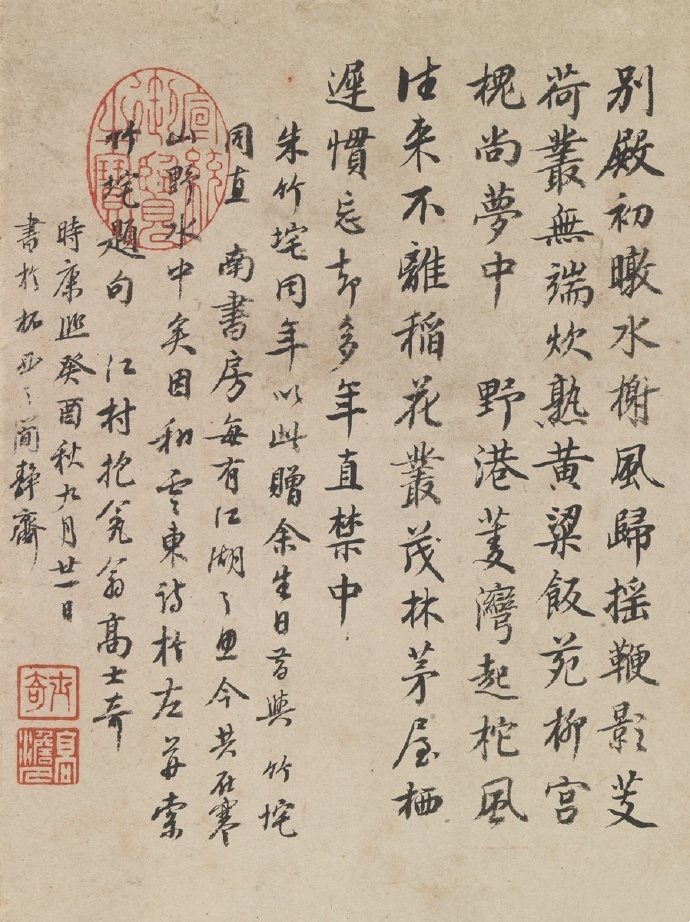 別殿初暾水榭風歸搖鞭影芰
荷叢無端炊熟黃粱飯苑柳宮
槐尚夢中 野港菱灣起柁風
往來不離稻花叢茂林茅屋栖
遲慣忘却多年直禁中
朱竹垞同年以此贈余生日昔與竹垞
同直 南書房每有江湖之思今共在寒
山野水中矣因和雲東詩於左并索
竹垞題句 江村抱瓮翁高士奇
時康熙癸酉秋九月廿一日
書於柘西之簡靜齋
宣統御覽之寶
士奇
高澹人